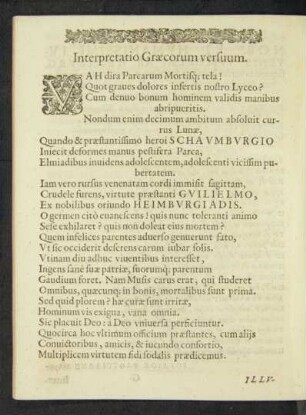 Interpretatio Græcorum versuum.
VAH dira Parcarum Mortisq; tela!
Quot graues dolores infertis nostro Lyceo?
Cum denuo bonum hominem validis manibus
abripueritis.
Nondum enim decimum ambitum absoluit cur-
rus Lunæ,
Quando & præstantissimo heroi SCHAVMBVRGIO
Iniecit deformes manus pestifera Parca,
Elmiadibus inuidens adolescentem, adolescenti vicissim pu-
bertatem.
Iam vero rursus venenatam cordi immisit sagittam,
Crudele furens, virtute præstanti GVILIELMO,
Ex nobilibus oriundo HEIMBVRGIADIS.
O germen citò euanescens! quis nunc toleranti animo
Sele exhilaret? quis non doleat eius mortem?
Quem infelices parentes aduerso genuerunt fato,
Vt sic occiderit deserens carum iubar solis.
Vtinam diu adhuc viuentibus interesset,
Ingens sanè suæ patriæ, suorumq; parentum
Gaudium foret. Nam Musis carus erat, qui studeret
Omnibus, quæcunq; in bonis, mortalibus sunt prima.
Sed quid plorem? hæ curæ sunt irritæ,
Hominum vis exigua, vana omnia.
Sic placuit Deo: à Deo vniuersa perficiuntur.
Quocirca hoc vltimum officium præstantes, cum alijs
Conuictoribus, amicis, & iucundo consortio,
Multiplicem virtutem fidi sodalis prædicemus.
ILLV-